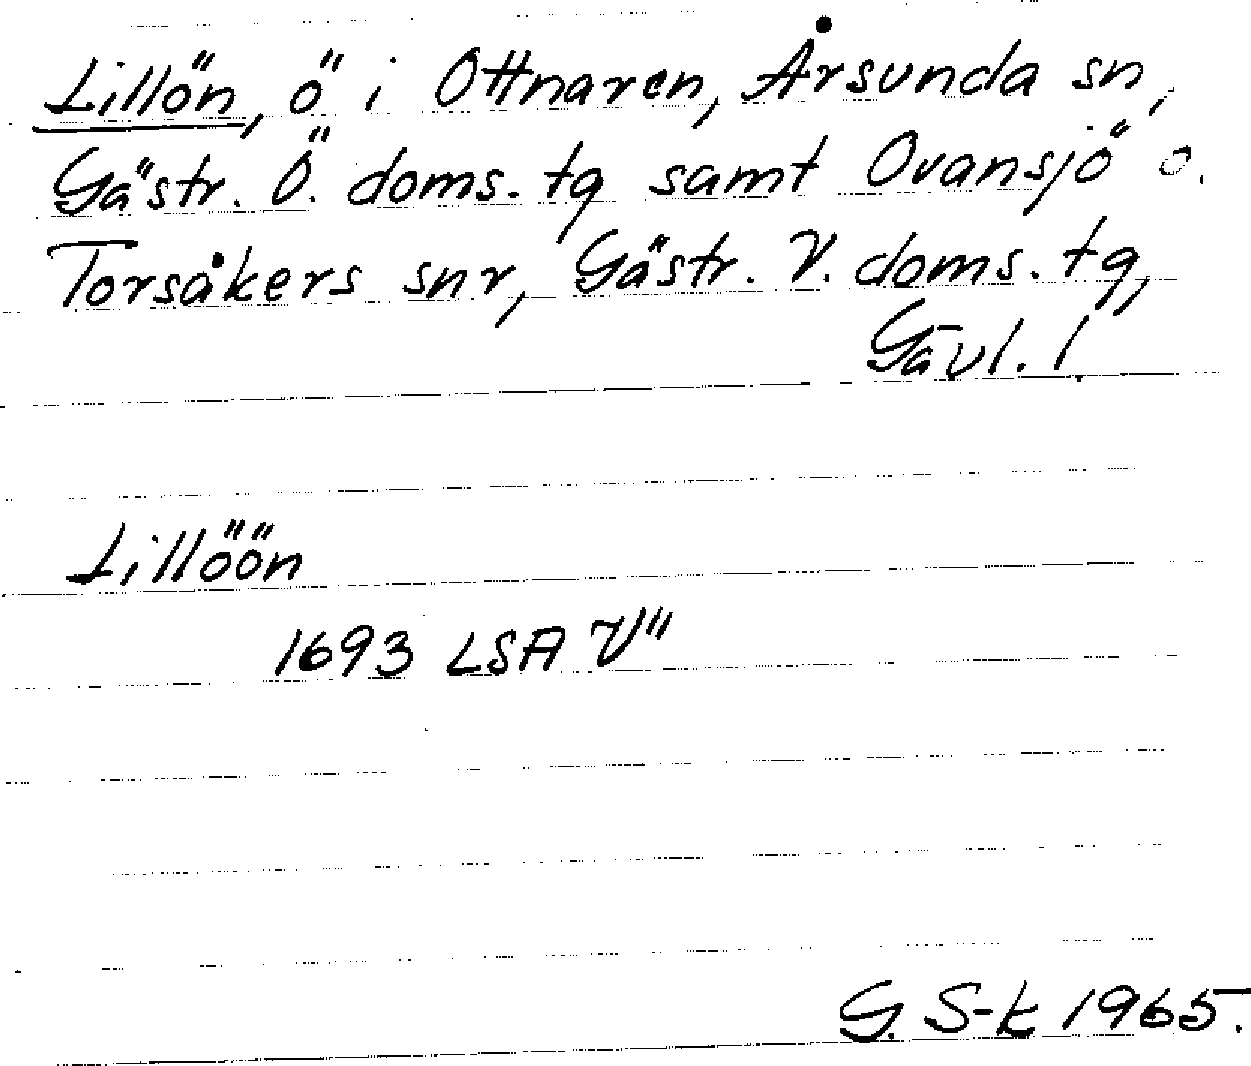 Lillön, ö i Ottnaren, Årsunda sn,
Gästr. Ö. doms. tg samt Ovansjö o.
Torsåkers snr, Gästr. V. doms. tg,
Gävl. l.
Lillöön
1693 LSA V"
G. S-k 1965.